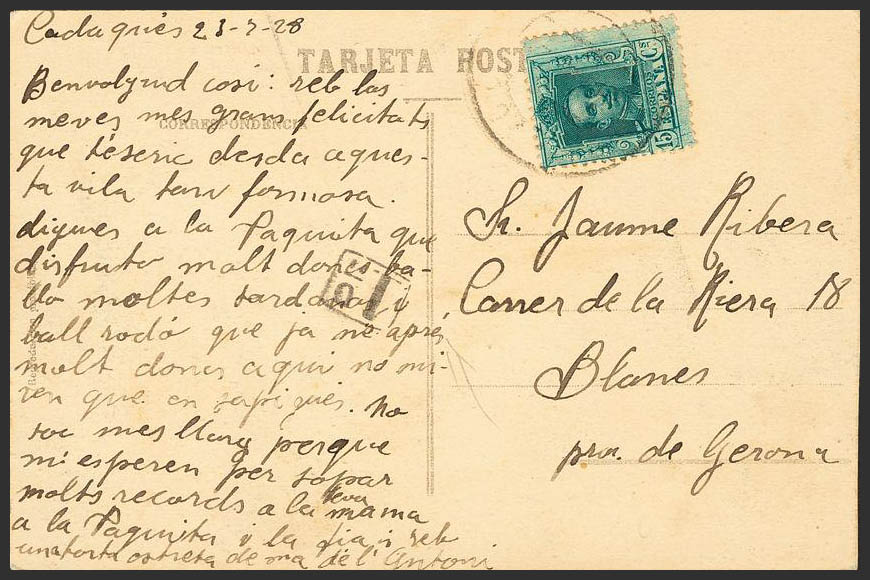 Cadaqués 23-7-28
TARJETA POST
CORRESPONDENCIA
Benvolgud cosi: reb las
meves mes grans felicitats
que t'escric desda aques-
ta vila tan formosa.
digues a la Paquita que
disfruto molt dones ba-
llo moltes sardanas i
ball rodó que ja no apres
molt dones aqui no mi-
ren que en sapigues. No
soc mes llarg perque
m'esperen per sopar
molts records a la teva mama
a la Paquita i la tia i reb
una forta estreta de ma de l'Antoni
Sr. Jaume Ribera
Carrer de la Riera 18
Blanes
prov. de Gerona